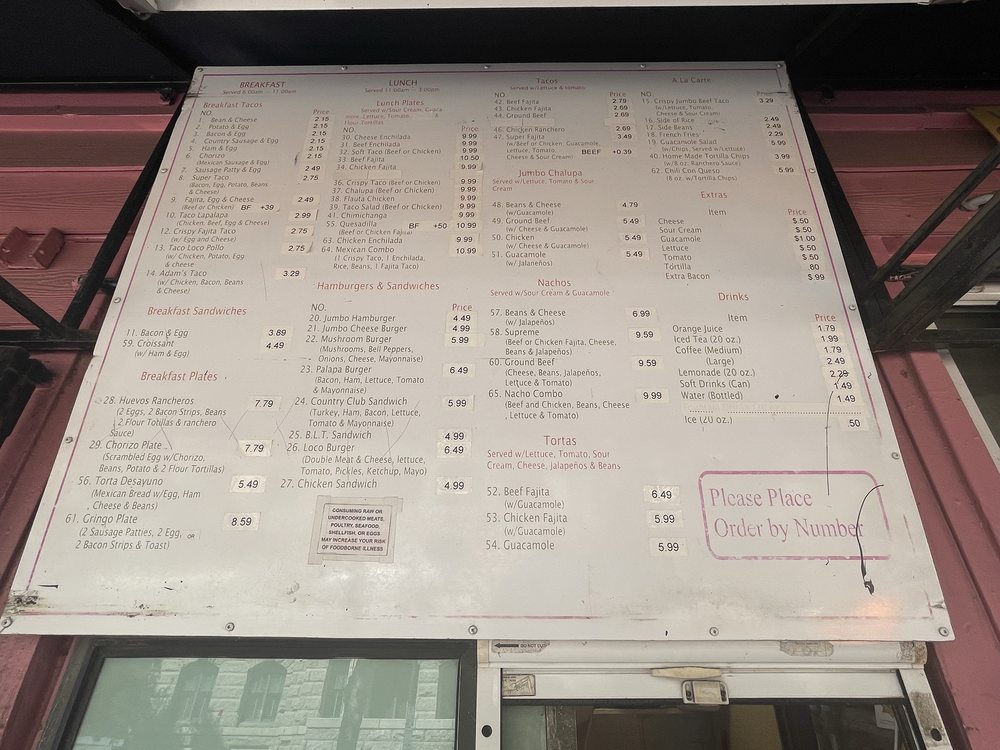 BREAKFAST
Served 6:00am - 11:00am
Breakfast Tacos
NO. Price
1. Bean & Cheese 2.15
2. Potato & Egg 2.15
3. Bacon & Egg 2.15
4. Country Sausage & Egg 2.15
5. Ham & Egg 2.15
6. Chorizo 2.15
(Mexican Sausage & Egg)
7. Sausage Patty & Egg 2.49
8. Super Taco 2.75
(Bacon, Egg, Potato, Beans
& Cheese)
9. Fajita, Egg & Cheese 2.49
(Beef or Chicken) BF +39
10. Taco Lapalapa 2.99
(Chicken, Beef, Egg & Cheese)
12. Crispy Fajita Taco 2.75
(w/ Egg and Cheese)
13. Taco Loco Pollo 2.75
(w/ Chicken, Potato, Egg
& cheese
14. Adam's Taco 3.29
(w/ Chicken, Bacon, Beans
& Cheese)
Breakfast Sandwiches
11. Bacon & Egg 3.89
59. Croissant 4.49
(w/ Ham & Egg)
Breakfast Plates
28. Huevos Rancheros 7.79
(2 Eggs, 2 Bacon Strips, Beans
, 2 Flour Tortillas & ranchero
Sauce)
29. Chorizo Plate 7.79
(Scrambled Egg w/Chorizo,
Beans, Potato & 2 Flour Tortillas)
56. Torta Desayuno 5.49
(Mexican Bread w/Egg, Ham
, Cheese & Beans)
61. Gringo Plate 8.59
(2 Sausage Patties, 2 Egg, OR
2 Bacon Strips & Toast)
LUNCH
Served 11:00am - 3:00pm
Lunch Plates
Served w/Sour Cream,
Lettuce, Tomato, &
Flour Tortillas
NO. Price
30. Cheese Enchilada 9.99
31. Beef Enchilada 9.99
32. Soft Taco (Beef or Chicken) 9.99
33. Beef Fajita 10.50
34. Chicken Fajita 9.99
36. Crispy Taco (Beef or Chicken) 9.99
37. Chalupa (Beef or Chicken) 9.99
38. Flauta Chicken 9.99
39. Taco Salad (Beef or Chicken) 9.99
41. Chimichanga 9.99
55. Quesadilla BF +50 10.99
(Beef or Chicken Fajita)
63. Chicken Enchilada 9.99
64. Mexican Combo 10.99
(1 Crispy Taco, 1 Enchilada,
Rice, Beans, 1 Fajita Taco)
Hamburgers & Sandwiches
NO. Price
20. Jumbo Hamburger 4.49
21. Jumbo Cheese Burger 4.99
22. Mushroom Burger 5.99
(Mushrooms, Bell Peppers,
Onions, Cheese, Mayonnaise)
23. Palapa Burger 6.49
(Bacon, Ham, Lettuce, Tomato
& Mayonnaise)
24. Country Club Sandwich 5.99
(Turkey, Ham, Bacon, Lettuce,
Tomato & Mayonnaise)
25. B.L.T. Sandwich 4.99
26. Loco Burger 6.49
(Double Meat & Cheese, lettuce,
Tomato, Pickles, Ketchup, Mayo)
27. Chicken Sandwich 4.99
CONSUMING RAW OR
UNDERCOOKED MEATS,
POULTRY, SEAFOOD,
SHELLFISH, OR EGGS
MAY INCREASE YOUR RISK
OF FOODBORNE ILLNESS
Tacos
Served w/Lettuce & tomato
NO Price
42. Beef Fajita 2.79
43. Chicken Fajita 2.69
44. Ground Beef 2.69
46. Chicken Ranchero 2.69
47. Super Fajita 3.49
(w/Beef or Chicken, Guacamole,
Lettuce, Tomato, BEEF +0.39
Cheese & Sour Cream)
Jumbo Chalupa
Served w/Lettuce, Tomato & Sour
Cream
48. Beans & Cheese 4.79
(w/Guacamole)
49. Ground Beef 5.49
(w/ Cheese & Guacamole)
50. Chicken 5.49
(w/ Cheese & Guacamole)
51. Guacamole 5.49
(w/ Jalaneños)
Nachos
Served w/Sour Cream & Guacamole
57. Beans & Cheese 6.99
(w/ Jalapeños)
58. Supreme 9.59
(Beef or Chicken Fajita, Cheese,
Beans & Jalapeños)
60. Ground Beef 9.59
(Cheese, Beans, Jalapeños,
Lettuce & Tomato)
65. Nacho Combo 9.99
(Beef and Chicken, Beans, Cheese
, Lettuce & Tomato)
Tortas
Served w/Lettuce, Tomato, Sour
Cream, Cheese, Jalapeños & Beans
52. Beef Fajita 6.49
(w/Guacamole)
53. Chicken Fajita 5.99
(w/Guacamole)
54. Guacamole 5.99
A La Carte
NO. Price
15. Crispy Jumbo Beef Taco 3.29
(w/Lettuce, Tomato,
Cheese & Sour Cream)
16. Side of Rice 2.49
17. Side Beans 2.49
18. French Fries 2.29
19. Guacamole Salad 5.99
(w/Chips, Served w/Lettuce)
40. Home Made Tortilla Chips 3.99
(w/8 oz. Ranchero Sauce)
62. Chili Con Queso 5.99
(8 oz. w/Tortilla Chips)
Extras
Item Price
Cheese $.50
Sour Cream $.50
Guacamole $1.00
Lettuce $.50
Tomato $.50
Tortilla 80
Extra Bacon $.99
Drinks
Item Price
Orange Juice 1.79
Iced Tea (20 oz.) 1.99
Coffee (Medium) 1.79
(Large) 2.49
Lemonade (20 oz.) 2.29
Soft Drinks (Can) 1.49
Water (Bottled) 1.49
Ice (20 oz.) .50
Please Place
Order by Number
DO NOT CUT